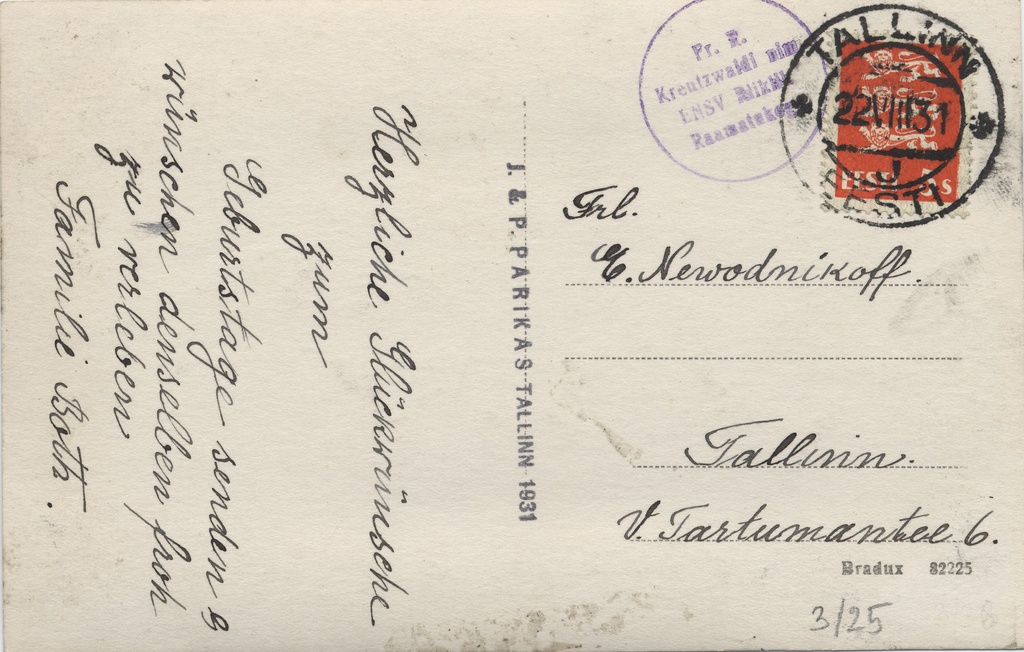 Herzliche Glückwünsche
zum
Geburtstage senden &
wünschen denselben froh
zu verleben
Familie Both.
J. & P. PARIKAS-TALLINN 1931
Fr. R.
Kreutzwaldi nim
ENSV Riikli
Raamatukogu
TALLINN
22VIII31
EESTI
EESTI 5 S
Frl.
E. Newodnikoff.
Tallinn.
V. Tartumantee 6.
Bradux 82225
3/25